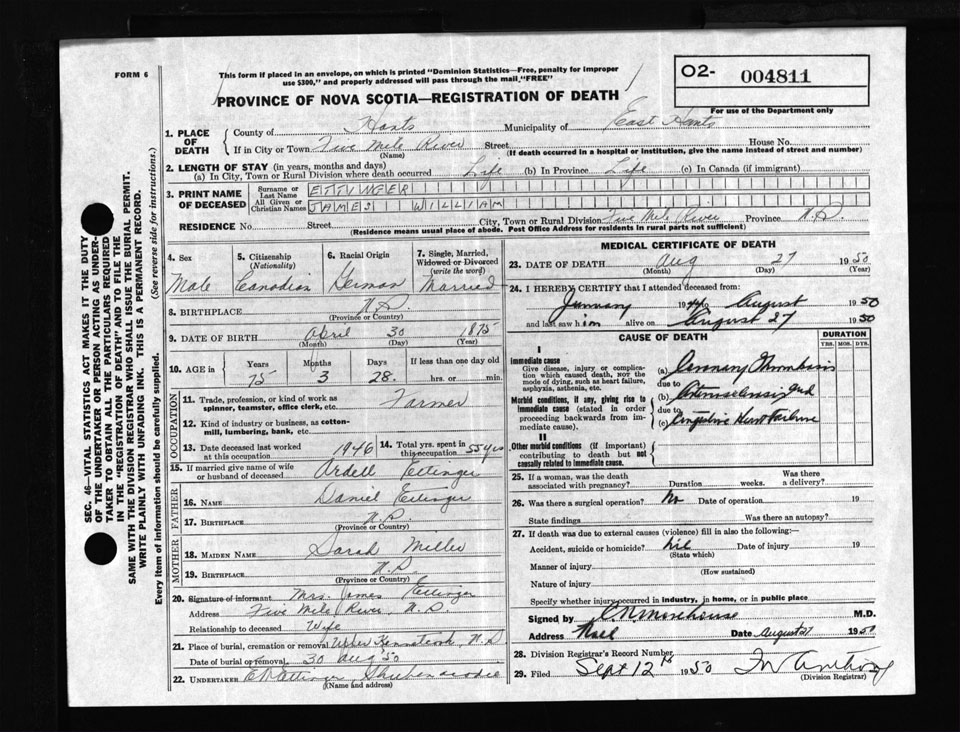 FORM 6
This form if placed in an envelope, on which is printed "Dominion Statistics—Free, penalty for improper
use $300," and properly addressed will pass through the mail, "FREE"
O2- 004811
For use of the Department only
PROVINCE OF NOVA SCOTIA—REGISTRATION OF DEATH
1. PLACE OF DEATH
County of Hants Municipality of East Hants
If in City or Town Five Mile River Street House No.
(Name) (If death occurred in a hospital or institution, give the name instead of street and number)
2. LENGTH OF STAY (in years, months and days)
(a) In City, Town or Rural Division where death occurred Life (b) In Province Life (c) In Canada (if immigrant)
3. PRINT NAME OF DECEASED
Surname or Last Name ETTINGER
All Given or Christian Names JAMES WILLIAM
RESIDENCE No. Street City, Town or Rural Division Five Mile River Province N.S.
(Residence means usual place of abode. Post Office Address for residents in rural parts not sufficient)
4. Sex Male
5. Citizenship (Nationality) Canadian
6. Racial Origin German
7. Single, Married, Widowed or Divorced (write the word) Married
8. BIRTHPLACE N.S.
(Province or Country)
9. DATE OF BIRTH April 30 1875
(Month) (Day) (Year)
10. AGE in Years 75 Months 3 Days 28. If less than one day old hrs. or min.
OCCUPATION
11. Trade, profession, or kind of work as spinner, teamster, office clerk, etc. Farmer
12. Kind of industry or business, as cotton-mill, lumbering, bank, etc.
13. Date deceased last worked at this occupation 1946 14. Total yrs. spent in this occupation 55 yrs
15. If married give name of wife or husband of deceased Ardell Ettinger
FATHER
16. NAME Daniel Ettinger
17. BIRTHPLACE N.S.
(Province or Country)
MOTHER
18. MAIDEN NAME Sarah Miller
19. BIRTHPLACE N.S.
(Province or Country)
20. Signature of informant Mrs. James Ettinger
Address Five Mile River, N.S.
Relationship to deceased Wife
21. Place of burial, cremation or removal Upper Kennetcook, N.S
Date of burial or removal 30 Aug 50
22. UNDERTAKER Ettinger Shubenacadie
(Name and address)
MEDICAL CERTIFICATE OF DEATH
23. DATE OF DEATH Aug 27 1950
(Month) (Day) (Year)
24. I HEREBY CERTIFY that I attended deceased from:
January to August 1950
and last saw him alive on August 27 1950
CAUSE OF DEATH
DURATION
YRS. MOS. DYS.
I
Immediate cause
Give disease, injury or complication which caused death, NOT the mode of dying, such as heart failure, asphyxia, asthenia, etc.
(a) Coronary Thrombosis
due to
Morbid conditions, if any, giving rise to immediate cause (stated in order proceeding backwards from immediate cause).
(b) Arteriosclerosis and
due to
(c) Congestive Heart Failure
II
Other morbid conditions (if important) contributing to death but not causally related to immediate cause.
25. If a woman, was the death associated with pregnancy? Duration weeks. Was there a delivery?
26. Was there a surgical operation? No Date of operation 19
State findings Was there an autopsy?
27. If death was due to external causes (violence) fill in also the following:
Accident, suicide or homicide? Nil Date of injury 19
(State which)
Manner of injury
(How sustained)
Nature of injury
Specify whether injury occurred in industry, in home, or in public place
Signed by Morehouse M.D.
Address Noel Date August 27 1950
28. Division Registrar's Record Number
29. Filed Sept 12th 1950 Anthony
(Division Registrar)
SEC. 46—VITAL STATISTICS ACT MAKES IT THE DUTY
OF THE UNDERTAKER OR PERSON ACTING AS UNDER-
TAKER TO OBTAIN ALL THE PARTICULARS REQUIRED
IN THE "REGISTRATION OF DEATH" AND TO FILE THE
SAME WITH THE DIVISION REGISTRAR WHO SHALL ISSUE THE BURIAL PERMIT.
WRITE PLAINLY WITH UNFADING INK. THIS IS A PERMANENT RECORD.
Every item of information should be carefully supplied. (See reverse side for instructions.)